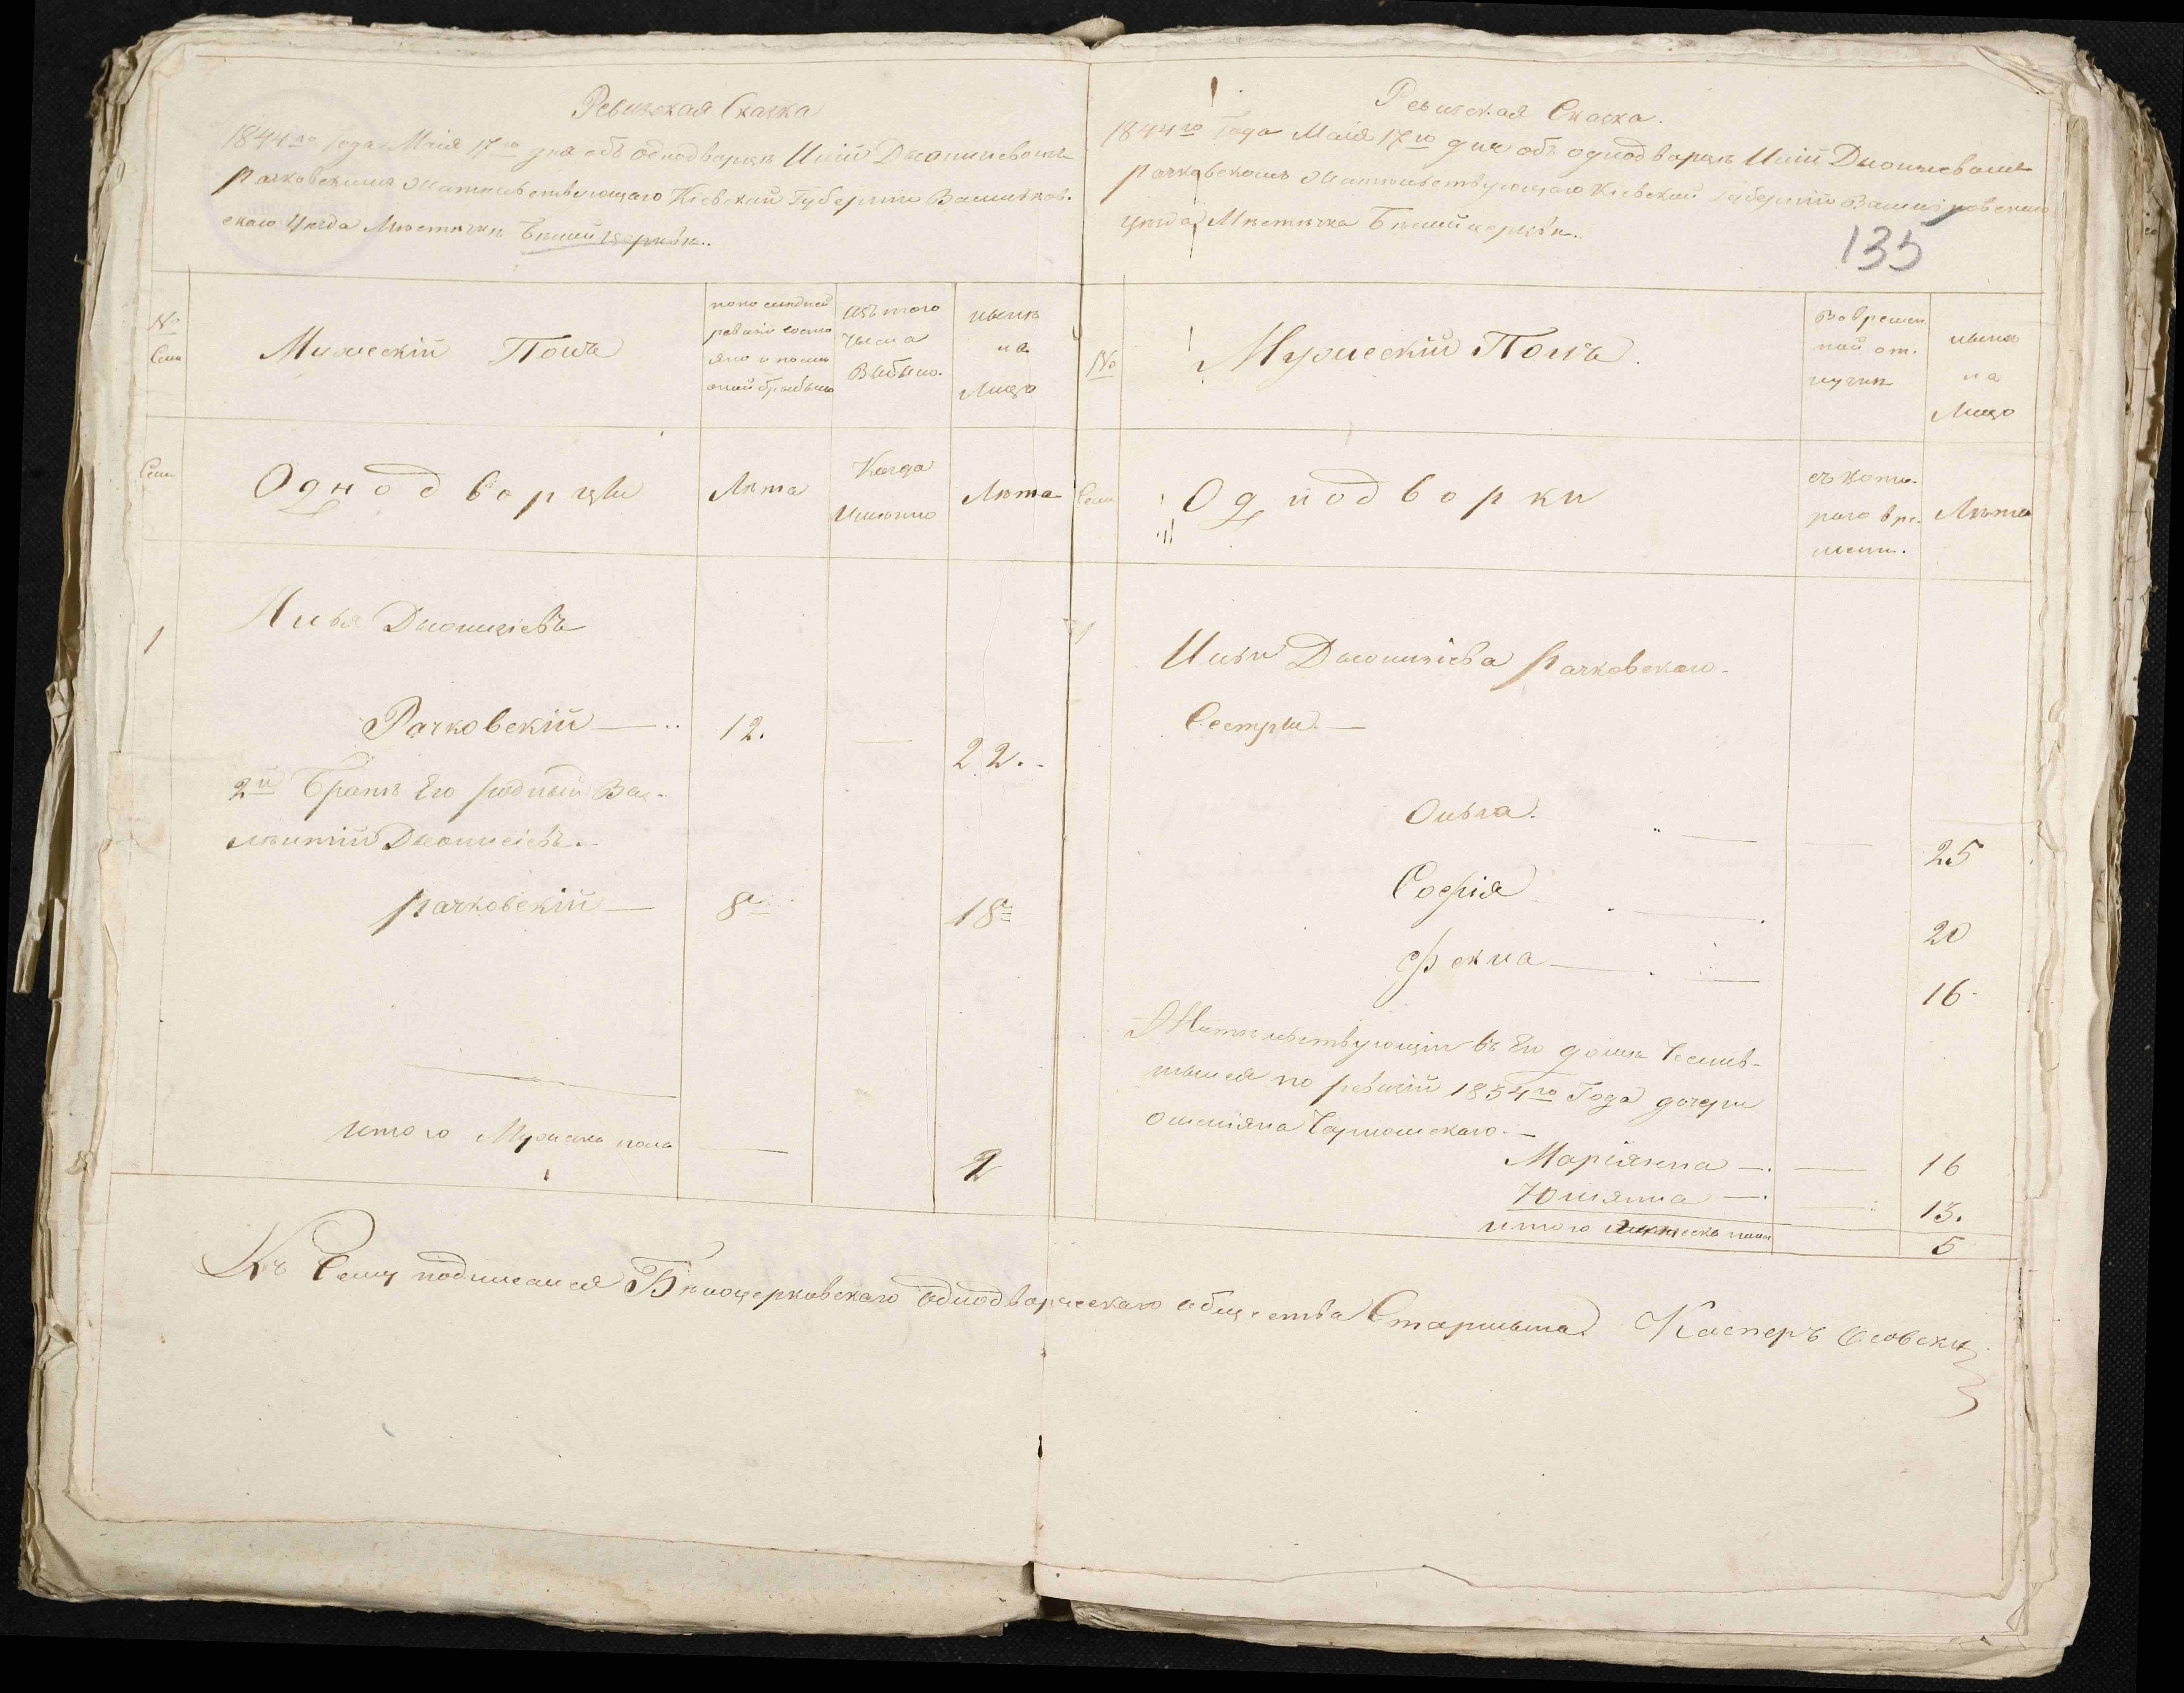 Ревизская Сказка
1844го Года Маія 17го дня объ однодворцѣ Иліи Дионизіевомъ
Рачковскимъ жительствующаго Кіевской Губерніи Васильков.
скаго Уѣзда Мѣстечкѣ Бѣлой церкѣви..
№
Сем
Мужескій Полъ
по последней
ревизіи состо
яло и после
оной прибыло
изъ того
числа
выбыло.
нынѣ
на
Лицо
Сем
Однодворцы
Лѣта
Когда
Именно
Лѣта
1
Илья Дионизіевъ
Рачковскій — 12. — 22.
2й Братъ Его родный Ва-
лентій Дионисіевъ.
Рачковскій — 8 18
итого Мужска пола — 2
Ревизская Сказка.
1844го Года Маія 17го дня объ однодворцѣ Иліи Дионизіевомъ
Рачковскомъ жительствующаго Кіевской Губерніи Васильковскаго
Уѣзда Мѣстечка Бѣлой церкѣви..
135
№
Мужескій Полъ.
Вовремен
ной от.
лучкѣ
нынѣ
на
Лицо
Сем
Однодворки
съ кото.
раго вре.
мени.
Лѣта
1
Ильи Дионизіева Рачковскаго
Сестры. —
Ольга. — 25
Софія — 20
Фекла — 16
Жительствующіи въ Его домѣ
по ревизіи 1834го Года дочери
Чарношскаго. —
Маріянна — 16
Юліянна — 13.
итого женска пола 5
Къ Сему подписался Бѣлоцерковскаго однодворческаго общества Старшина Касперъ Осовски